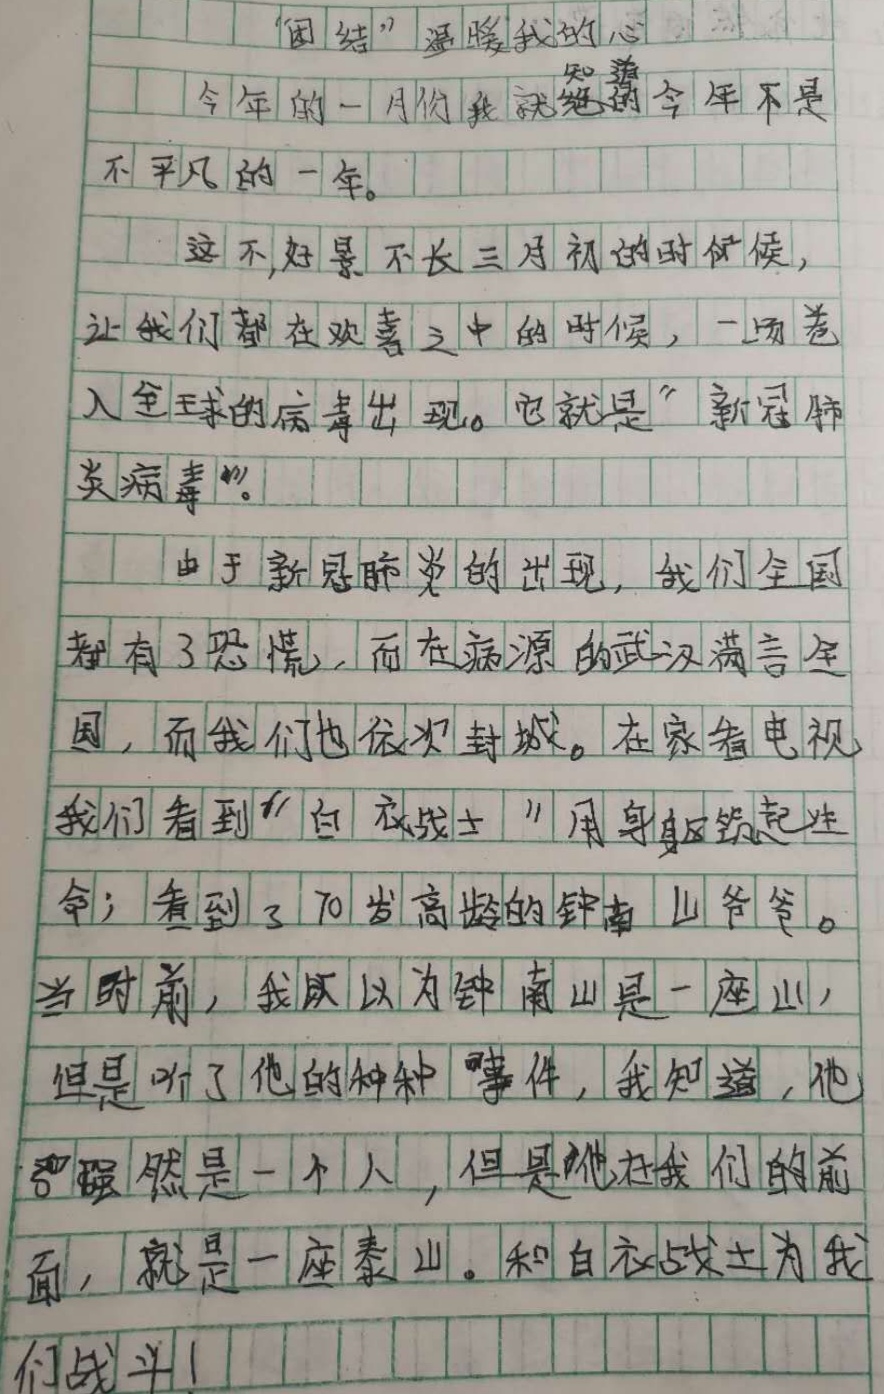 “团结”温暖我的心
今年的一月份我就知道今年不是
不平凡的一年。
这不,好景不长三月初的时候,
让我们都在欢喜之中的时候,一场卷
入全球的病毒出现。它就是“新冠肺
炎病毒”。
由于新冠肺炎的出现,我们全国
都有了恐慌,而在病源的武汉满言全
国,而我们也依次封城。在家看电视
我们看到“白衣战士”用身躯筑起生
命;看到了70岁高龄的钟南山爷爷。
当时前,我以为钟南山是一座山,
但是听了他的种种事件,我知道,他
虽然是一个人,但是他在我们的前
面,就是一座泰山。和白衣战士为我
们战斗!